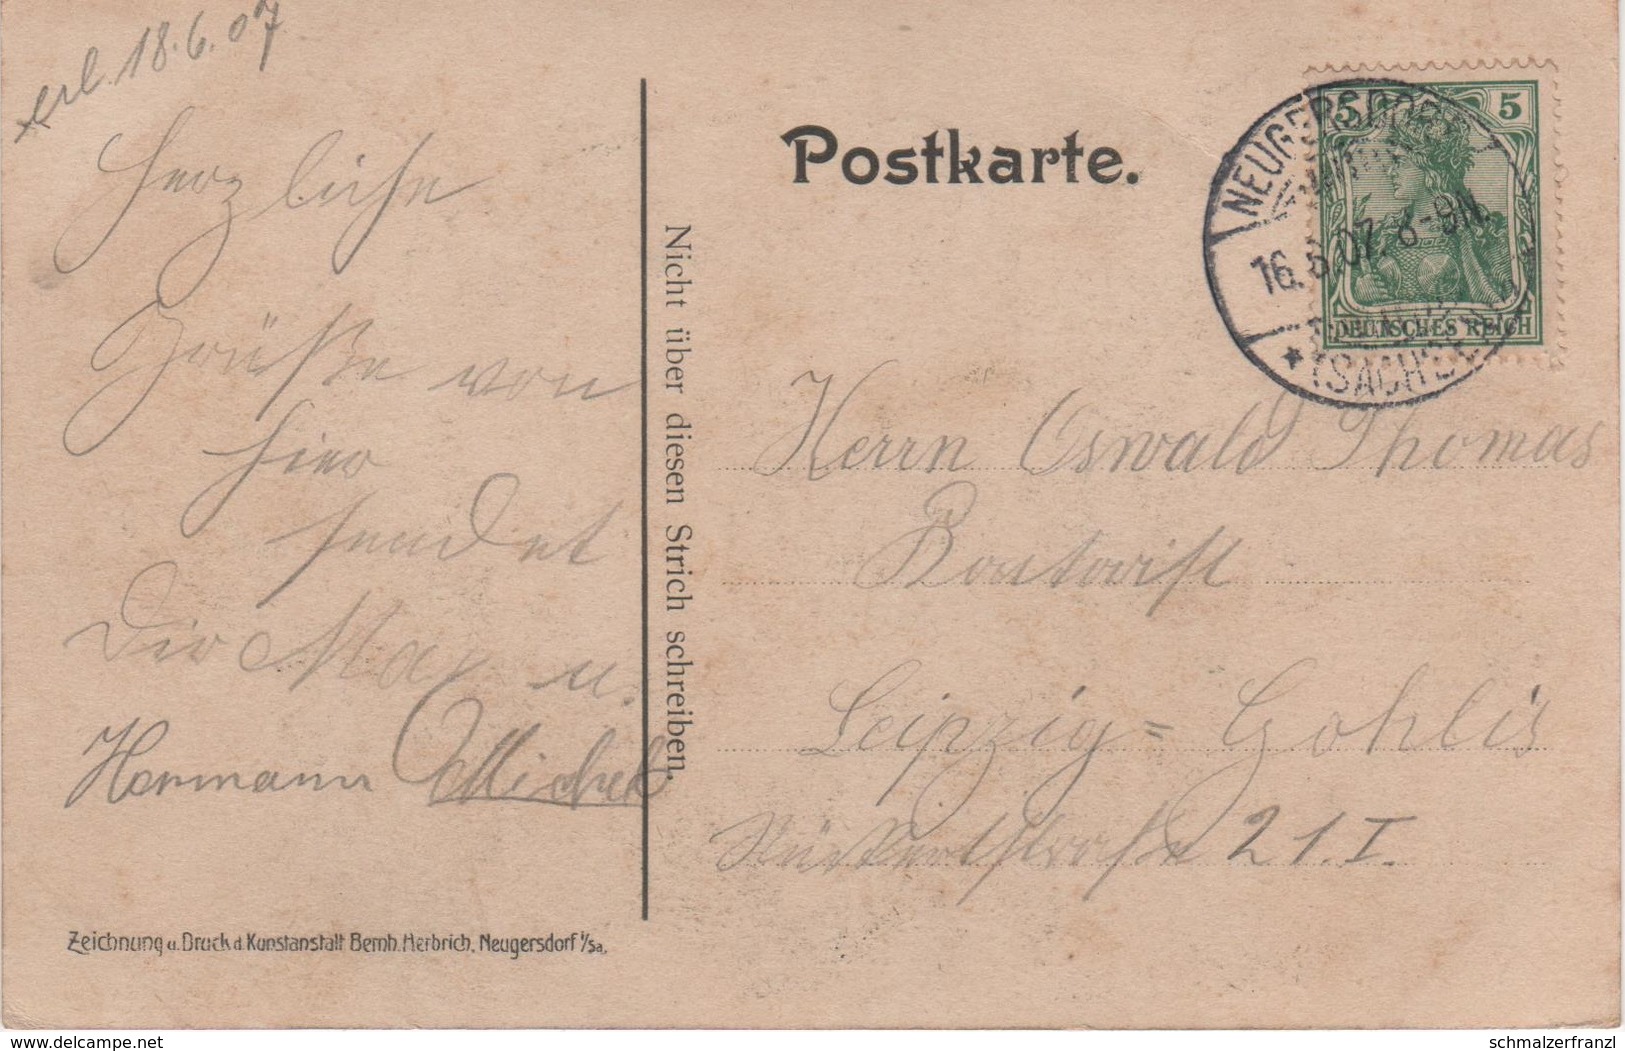 erl. 18.6.07
Herzliche
Grüße von
hier
sendet
Dir Max u.
Hermann Michel
Zeichnung u. Druck d. Kunstanstalt Bernh. Herbrich, Neugersdorf i/Sa.
Nicht über diesen Strich schreiben.
Postkarte.
5 5
DEUTSCHES REICH
NEUGERSDORF
16.6.07. 8-9N.
* (SACHSEN)
Herrn Oswald Thomas
Leipzig=Gohlis
Rückertstraße 21.I.
delcampe.net
schmalzerfranzl